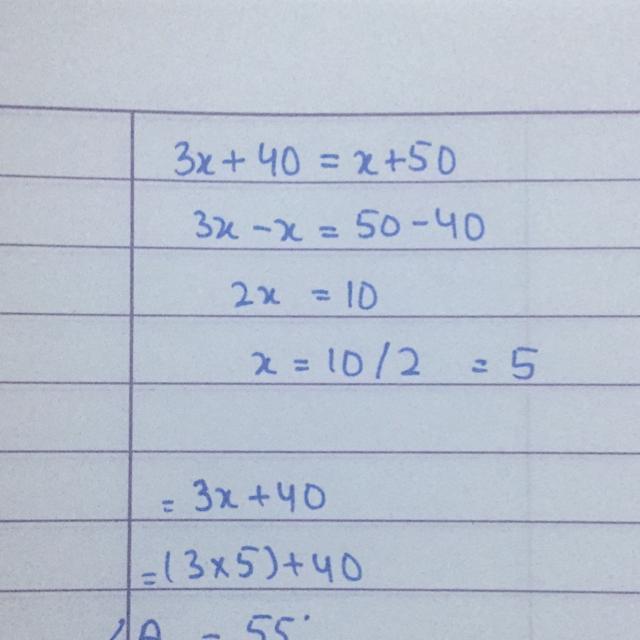 3x + 40 = x + 50
3x - x = 50 - 40
2x = 10
x = 10 / 2 = 5
= 3x + 40
= (3 x 5) + 40
∠A = 55°